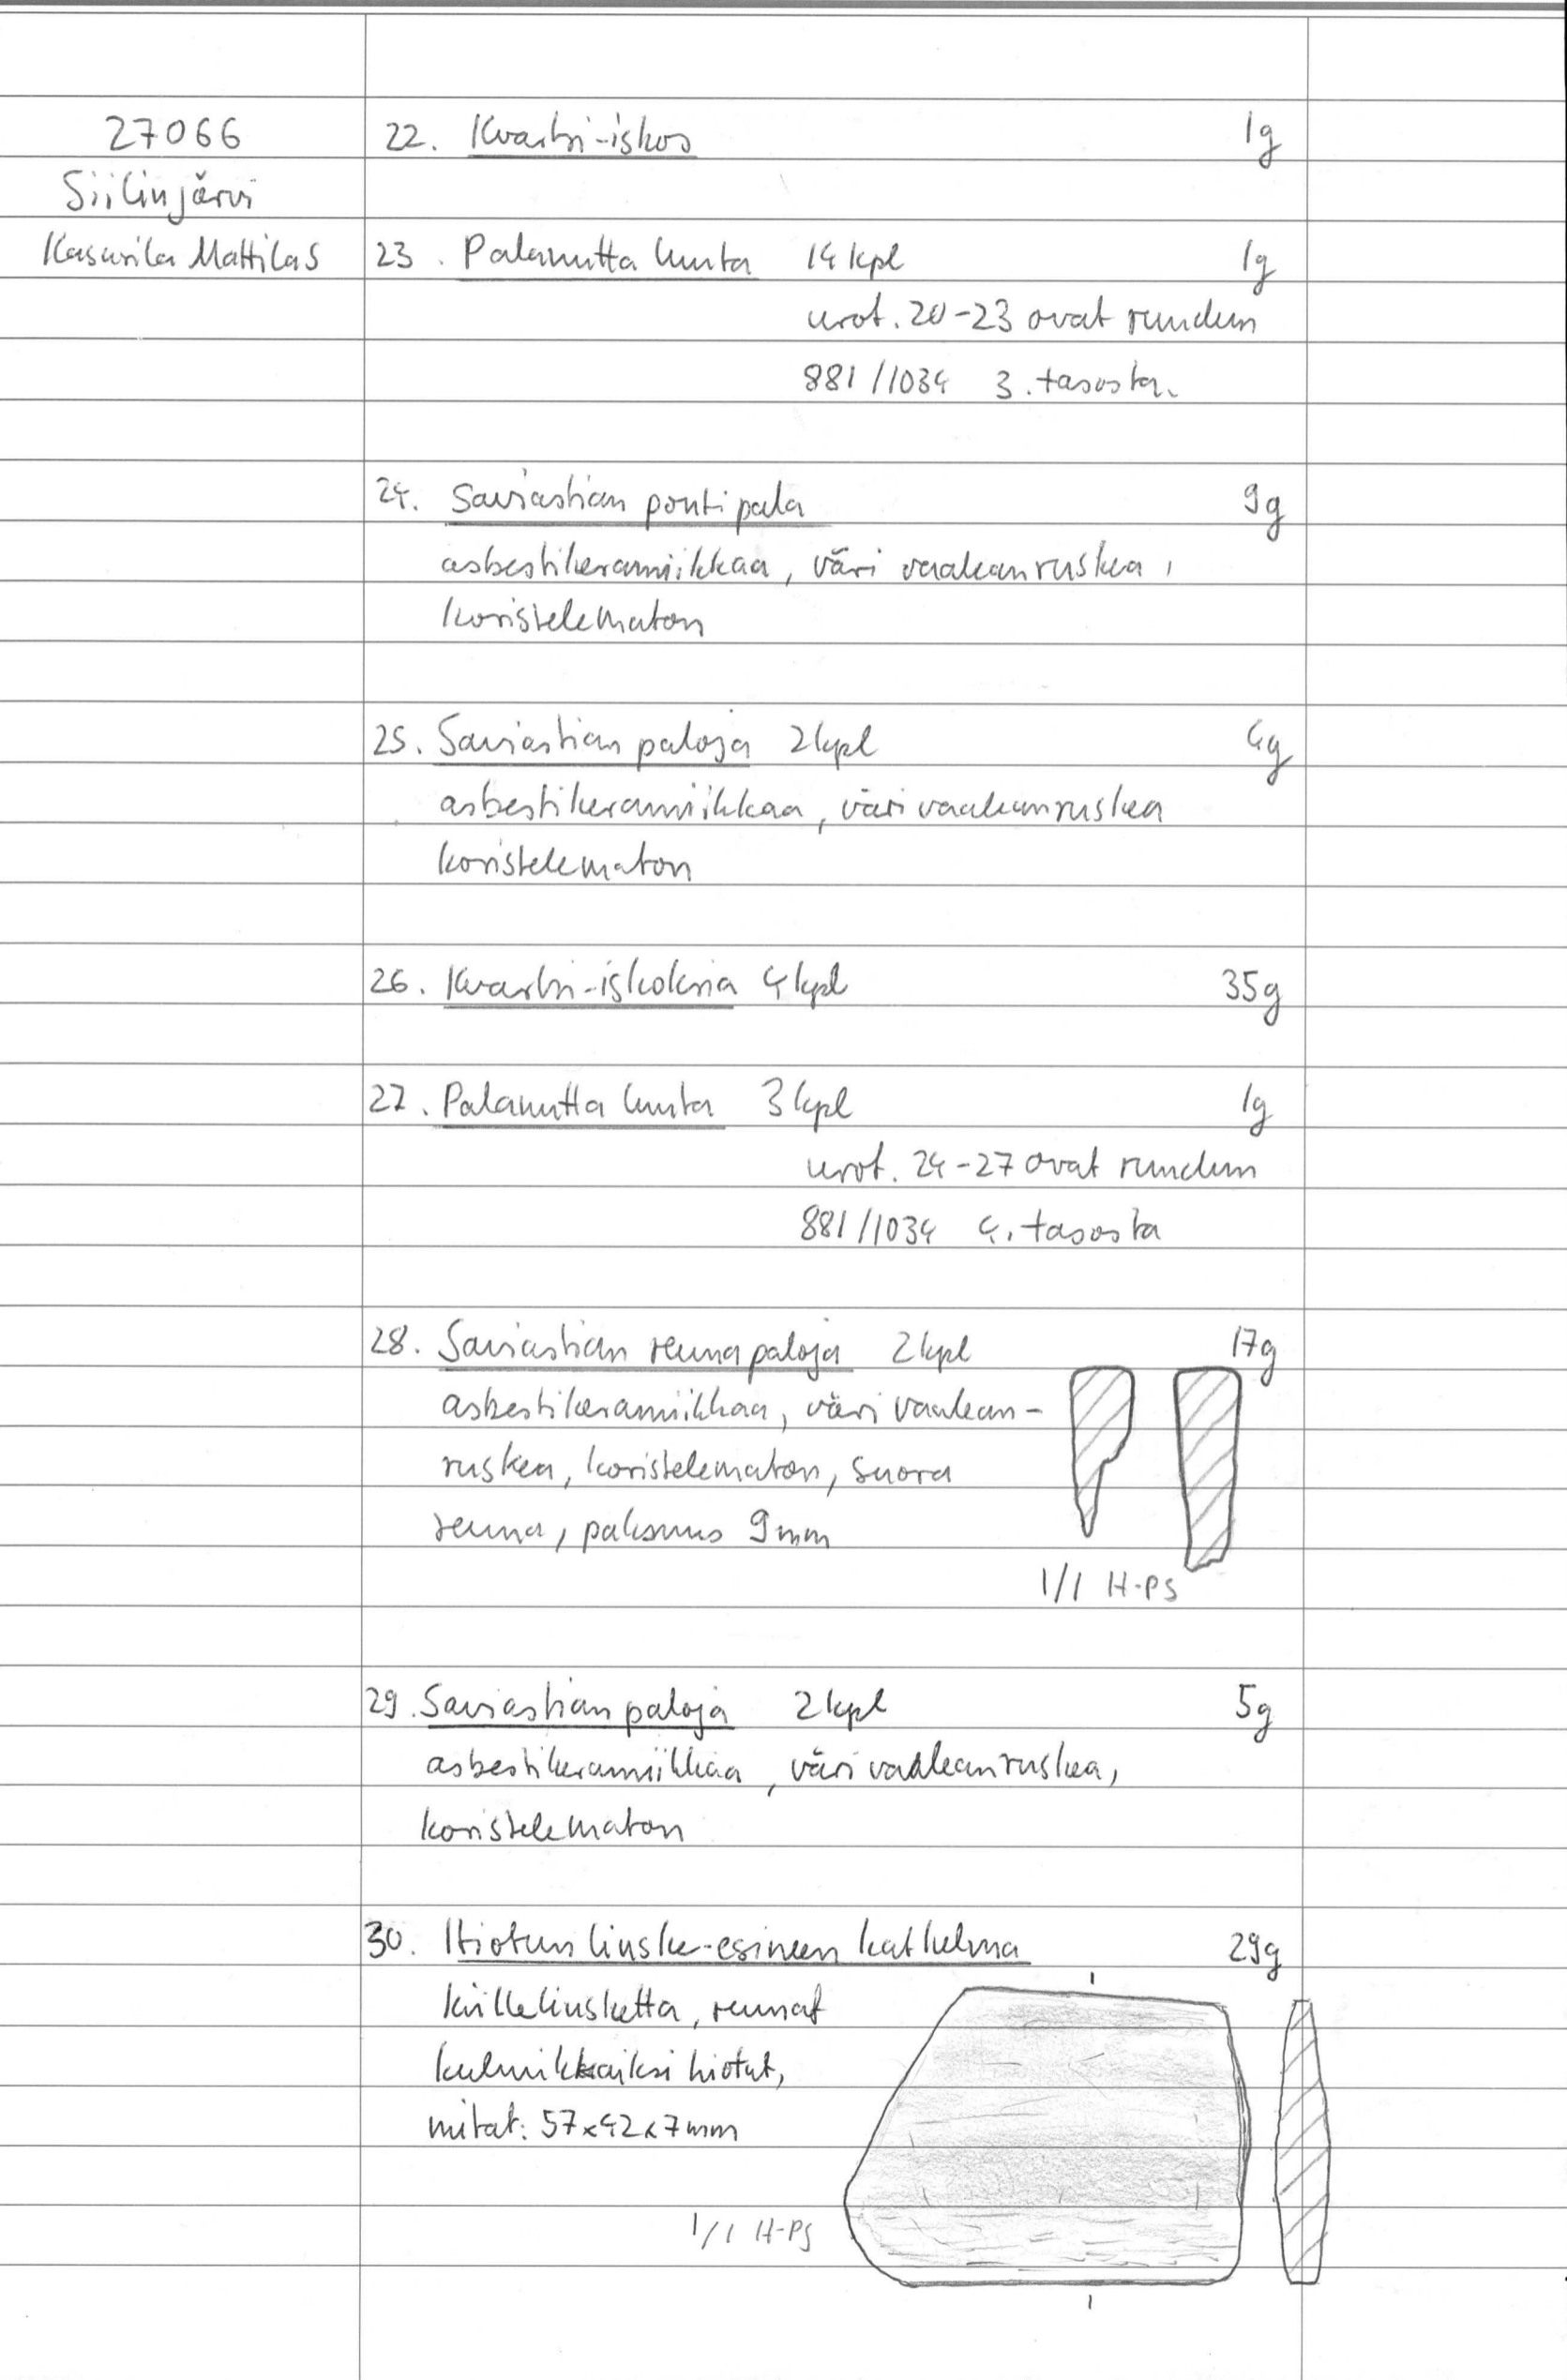 27066
Siilinjärvi
Kasurila Mattila S
22. Kvartsi-iskos 1g
23. Palanutta luuta 14 kpl 1g
nrot. 20-23 ovat ruudun
881/1034 3. tasosta.
24. Saviastian pontipala 9g
asbestikeramiikkaa, väri vaaleanruskea,
koristelematon
25. Saviastian paloja 2 kpl 4g
asbestikeramiikkaa, väri vaaleanruskea
koristelematon
26. Kvartsi-iskoksia 4 kpl 35g
27. Palanutta luuta 3 kpl 1g
nrot. 24-27 ovat ruudun
881/1034 4. tasosta
28. Saviastian reunapaloja 2 kpl 17g
asbestikeramiikkaa, väri vaalean-
ruskea, koristelematon, suora
reuna, paksuus 9mm
1/1 H-PS
29. Saviastian paloja 2 kpl 5g
asbestikeramiikkaa, väri vaaleanruskea,
koristelematon
30. Hiotun liuske-esineen katkelma 29g
kiilleliusketta, reunat
kulmikkaiksi hiotut,
mitat: 57x42x7mm
1/1 H-PS